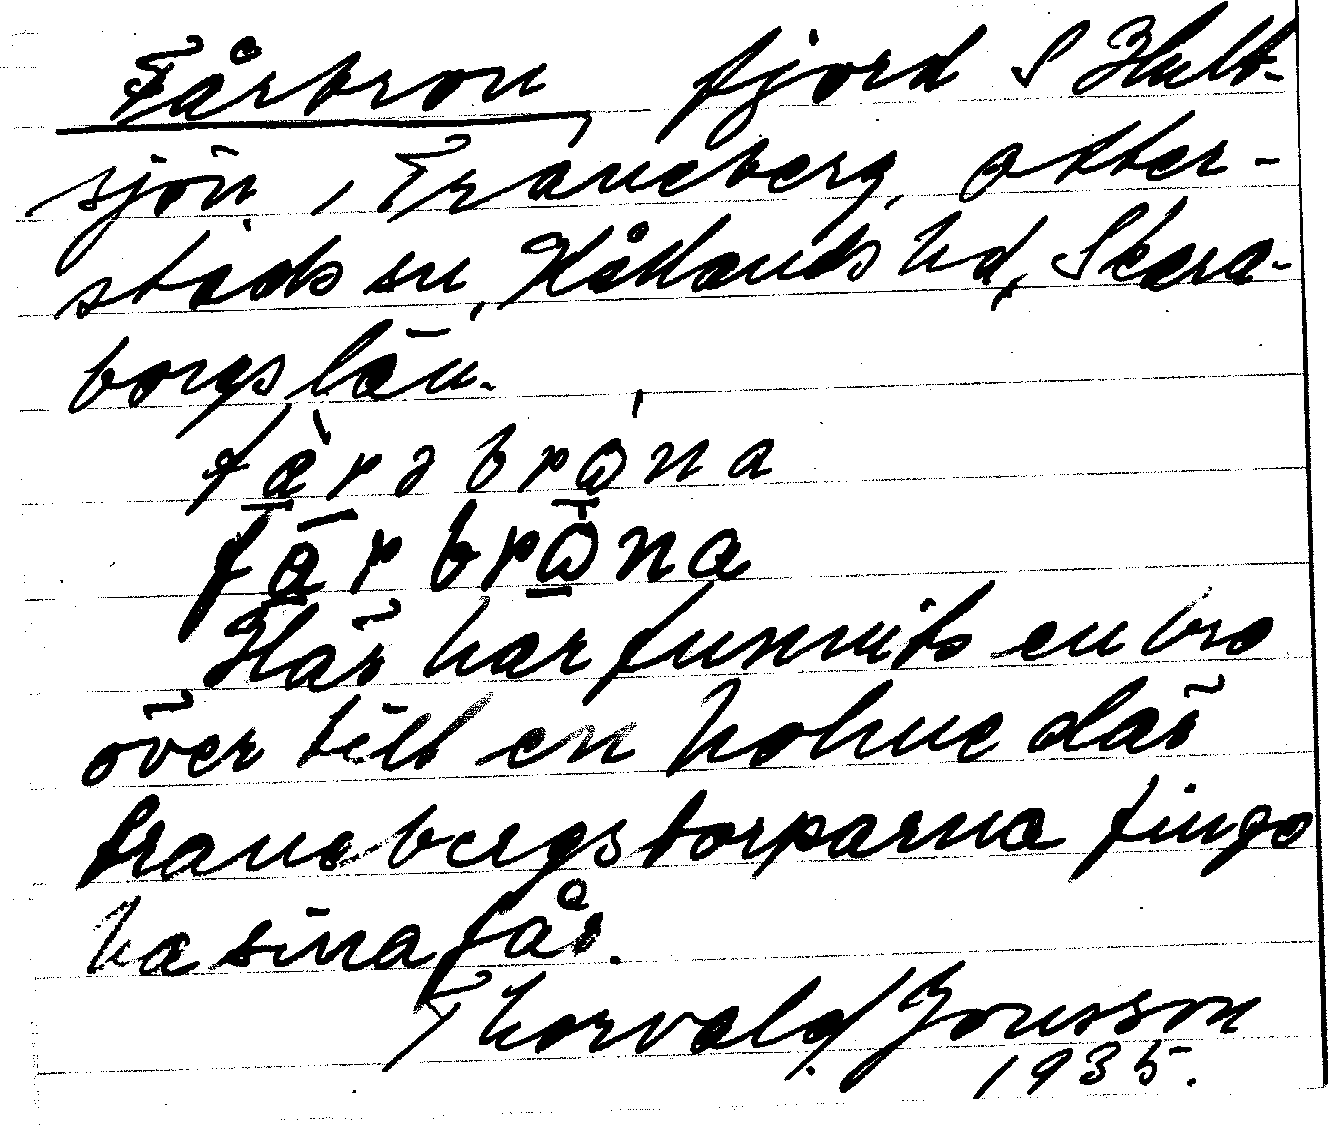 Fårbron, fjord i Hult-
sjön, Traneberg, Otter-
stads sn, Kållands hd, Skara-
borgs län.
Här har funnits en bro
över till en holme där
tranebergstorparna fingo
ha sina får.
Thorvald Jonsson
1935.